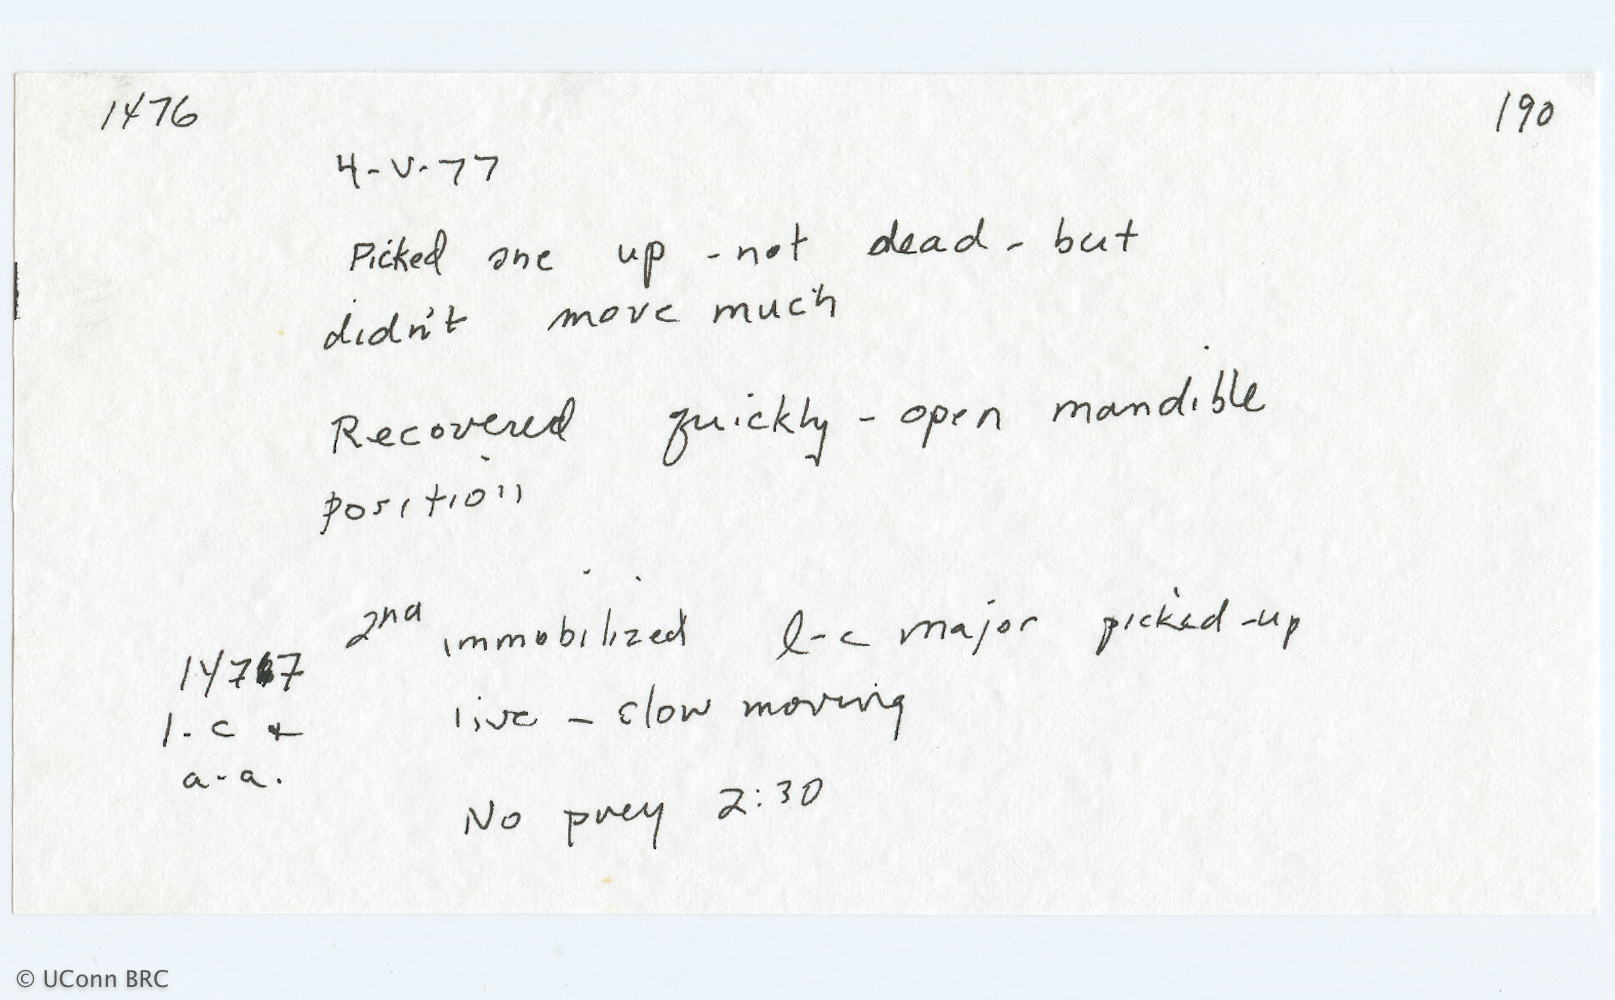 1476
190
4-V-77
Picked one up - not dead - but
didn't move much
Recovered quickly - open mandible
position
2nd immobilized l-c major picked-up
1477
live - slow moving
l-c +
a-a.
No prey 2:30
© UConn BRC